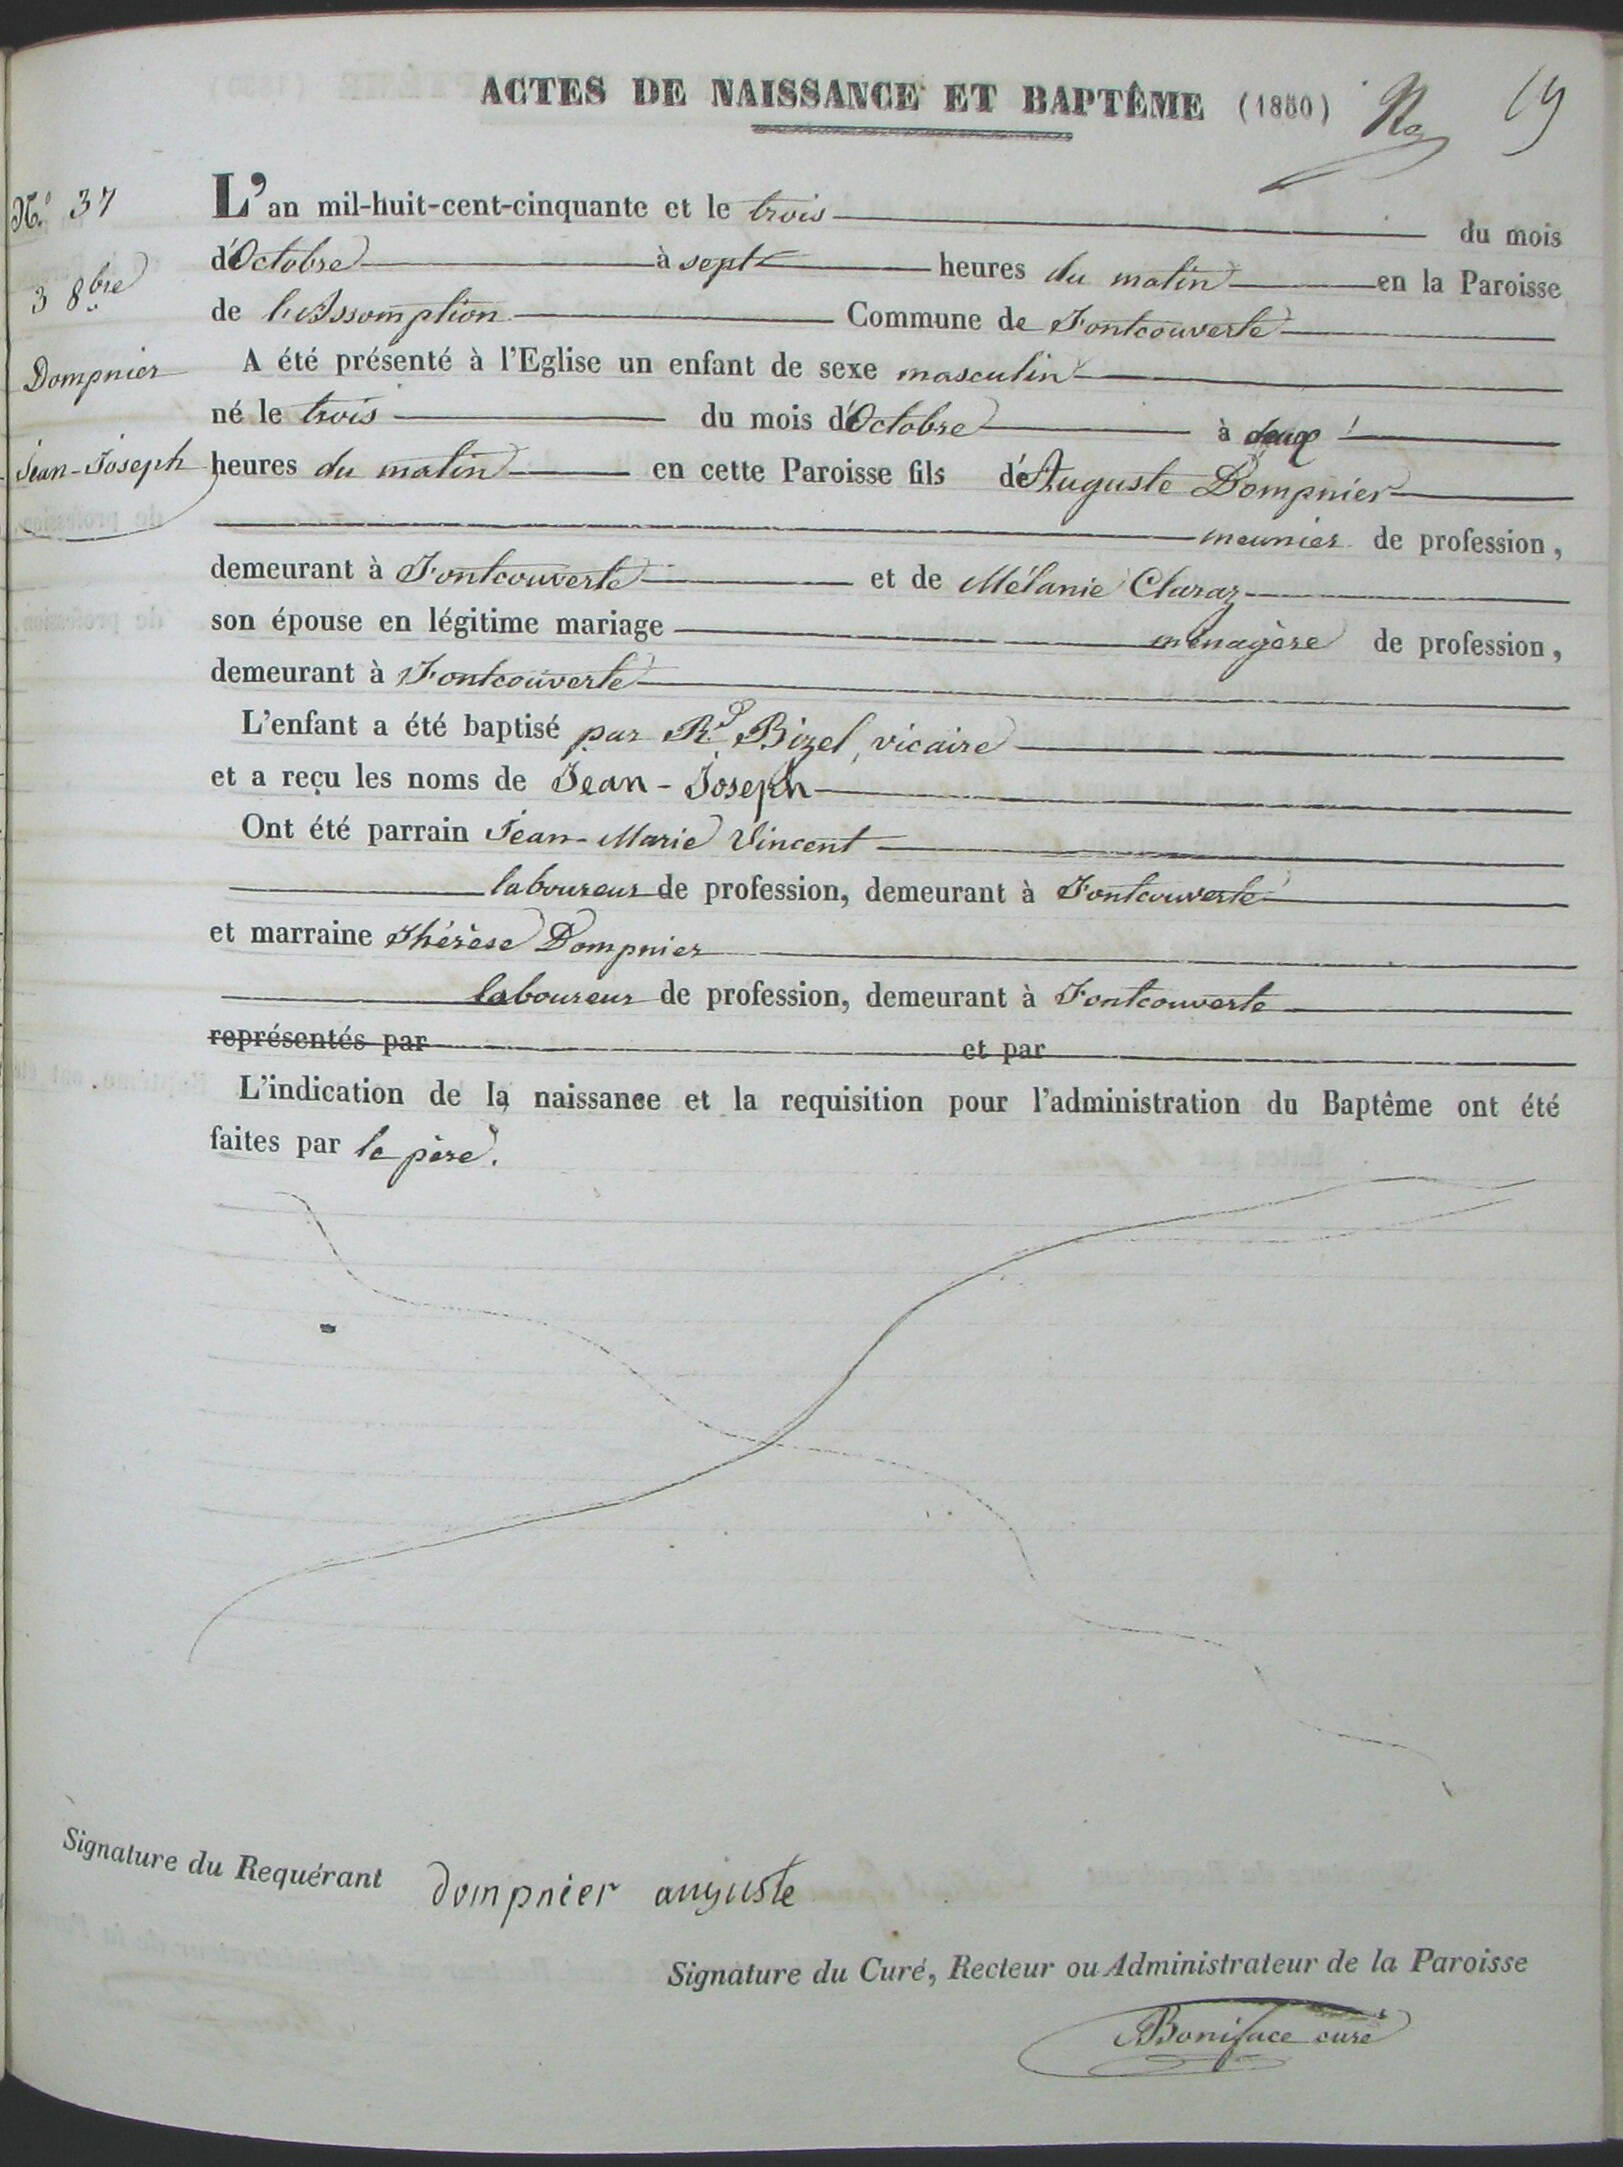 ACTES DE NAISSANCE ET BAPTÊME (1850)
19
N.º 37
3 8bre
Dompnier
Jean-Joseph
L'an mil-huit-cent-cinquante et le trois du mois
d'Octobre à sept heures du matin en la Paroisse
de l'Assomption Commune de Fontcouverte
A été présenté à l'Eglise un enfant de sexe masculin
né le trois du mois d'Octobre à deux
heures du matin en cette Paroisse fils d'Auguste Dompnier
meunier de profession,
demeurant à Fontcouverte et de Mélanie Claraz
son épouse en légitime mariage ménagère de profession,
demeurant à Fontcouverte
L'enfant a été baptisé par Rd Bizel, vicaire
et a reçu les noms de Jean-Joseph
Ont été parrain Jean-Marie Vincent
laboureur de profession, demeurant à Fontcouverte
et marraine Thérèse Dompnier
laboureur de profession, demeurant à Fontcouverte
représentés par et par
L'indication de la naissance et la requisition pour l'administration du Baptême ont été
faites par le père.
Signature du Requérant dompnier auguste
Signature du Curé, Recteur ou Administrateur de la Paroisse
Boniface curé